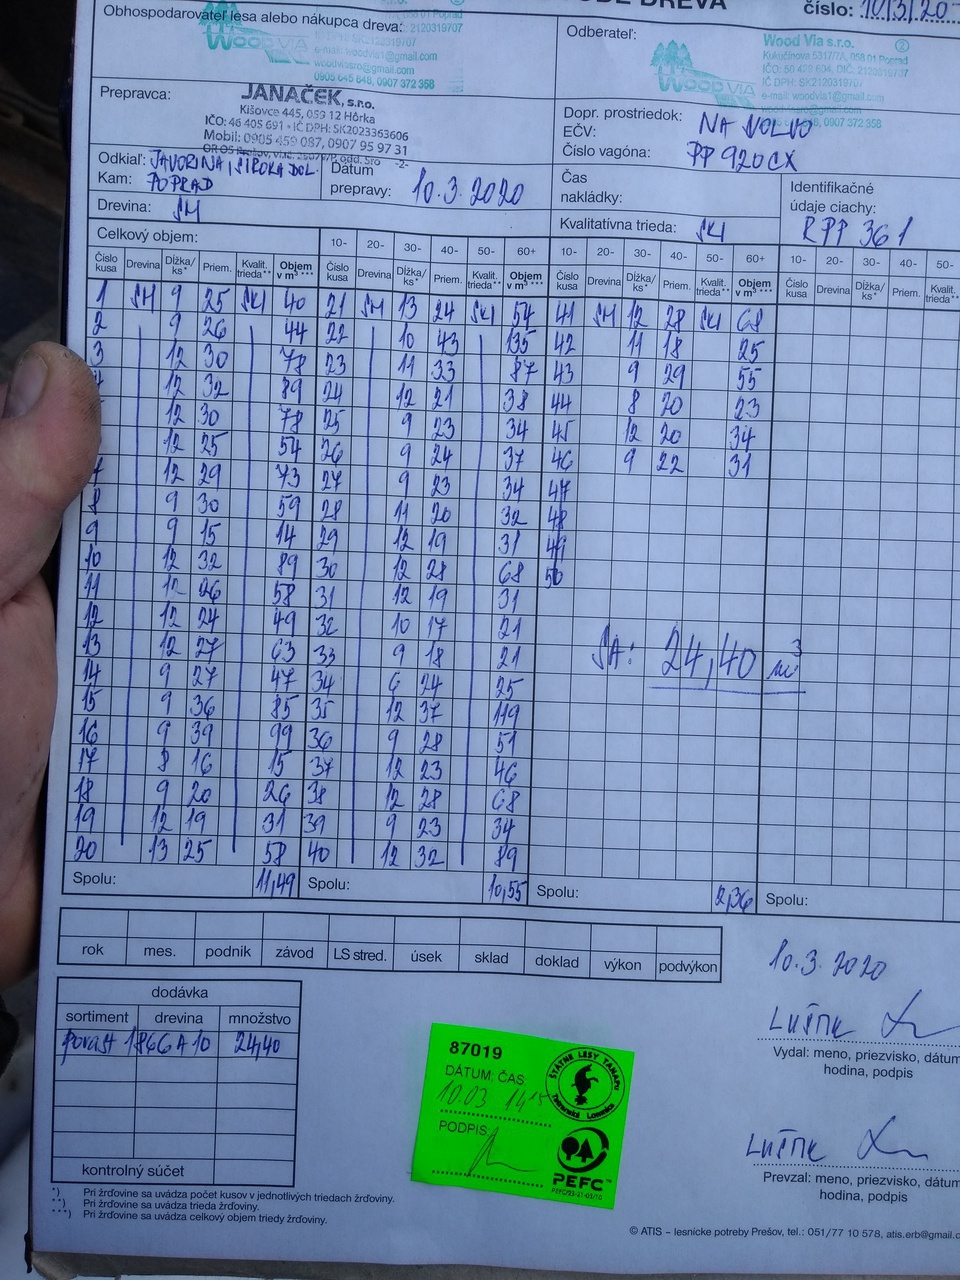 DREVA
číslo: 10/3/20
Obhospodarovateľ lesa alebo nákupca dreva:
WOOD VIA
e-mail: woodvia1@gmail.com
0905 645 848, 0907 372 358
Odberateľ:
WOOD VIA
Wood Via s.r.o. 2
Kukučínova 5317/7A, 058 01 Poprad
e-mail: woodvia1@gmail.com
Prepravca:
JANAČEK, s.r.o.
Kišovce 445, 059 12 Hôrka
IČO: 46 405 691 • IČ DPH: SK2023363606
Mobil: 0905 459 087, 0907 95 97 31
-2-
Dopr. prostriedok: NA VOLVO
EČV:
Číslo vagóna: PP 920CX
Odkiaľ: JAVORINA, ŠIROKÁ DOL.
Kam: POPRAD
Dátum
prepravy: 10.3.2020
Čas
nakládky:
Identifikačné
údaje ciachy:
RPP 361
Drevina: SM
Kvalitatívna trieda: SKI
Celkový objem: 10- 20- 30- 40- 50- 60+ 10- 20- 30- 40- 50- 60+ 10- 20- 30- 40- 50-
Číslo kusa Drevina Dĺžka/ ks* Priem. Kvalit. trieda** Objem v m³ *** Číslo kusa Drevina Dĺžka/ ks* Priem. Kvalit. trieda** Objem v m³ *** Číslo kusa Drevina Dĺžka/ ks* Priem. Kvalit. trieda** Objem v m³ *** Číslo kusa Drevina Dĺžka/ ks* Priem. Kvalit. trieda**
1 SM 9 25 SKI 40 21 SM 13 24 SKI 54 41 SM 12 28 SKI 68
2 9 26 44 22 10 43 135 42 11 18 25
3 12 30 78 23 11 33 87 43 9 29 55
12 32 89 24 12 21 38 44 8 20 23
12 30 78 25 9 23 34 45 12 20 34
12 25 54 26 9 24 37 46 9 22 31
7 12 29 73 27 9 23 34 47
8 9 30 59 28 11 20 32 48
9 9 15 14 29 12 19 31 49
10 12 32 89 30 12 28 68 50
11 12 26 58 31 12 19 31
12 12 24 49 32 10 17 21
13 12 27 63 33 9 18 21
14 9 27 47 34 6 24 25
15 9 36 85 35 12 37 119
16 9 39 99 36 9 28 51
17 8 16 15 37 12 23 46
18 9 20 26 38 12 28 68
19 12 19 31 39 9 23 34
20 13 25 58 40 12 32 89
SA: 24,40 m³
Spolu: 11,49 Spolu: 10,55 Spolu: 2,36 Spolu:
rok mes. podnik závod LS stred. úsek sklad doklad výkon podvýkon
10.3.2020
dodávka
sortiment drevina množstvo
porast 1866A10 24,40
kontrolný súčet
Vydal: meno, priezvisko, dátum
hodina, podpis
Prevzal: meno, priezvisko, dátum
hodina, podpis
87019
DÁTUM, ČAS:
10.03 14 15
PODPIS
ŠTÁTNE LESY TANAPU
Tatranská Lomnica
PEFC™
*) Pri žrďovine sa uvádza počet kusov v jednotlivých triedach žrďoviny.
**) Pri žrďovine sa uvádza trieda žrďoviny.
***) Pri žrďovine sa uvádza celkový objem triedy žrďoviny.
© ATIS – lesnícke potreby Prešov, tel.: 051/77 10 578, atis.erb@gmail.c